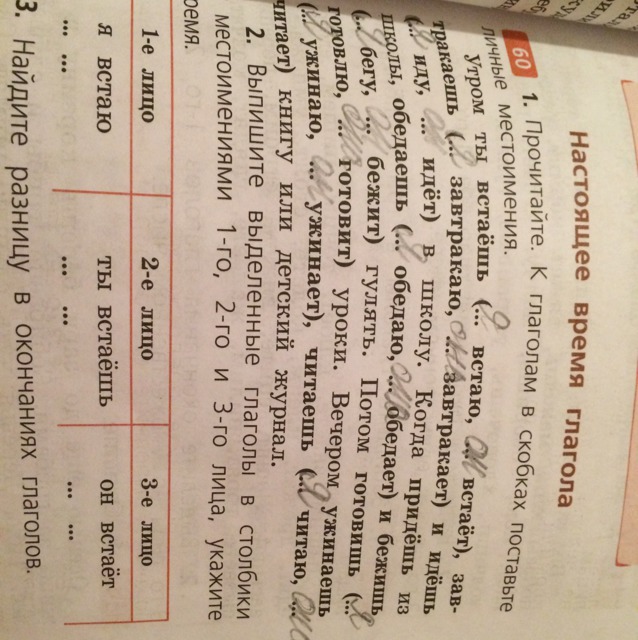 Настоящее время глагола
60 1. Прочитайте. К глаголам в скобках поставьте
личные местоимения.
Утром ты встаёшь (... Я встаю, он ... встаёт), зав-
тракаешь (... Я завтракаю, ... она завтракает) и идёшь
(... Я иду, ... он идёт) в школу. Когда придёшь из
школы, обедаешь (... Я обедаю, ... она обедает) и бежишь
(... Я бегу, ... он бежит) гулять. Потом готовишь (... Я
готовлю, ... она готовит) уроки. Вечером ужинаешь
(... Я ужинаю, ... он ужинает), читаешь (... Я читаю, ... она
читает) книгу или детский журнал.
2. Выпишите выделенные глаголы в столбики
с местоимениями 1-го, 2-го и 3-го лица, укажите
время.
1-е лицо 2-е лицо 3-е лицо
я встаю ты встаёшь он встаёт
... ... ... ... ... ...
3. Найдите разницу в окончаниях глаголов.